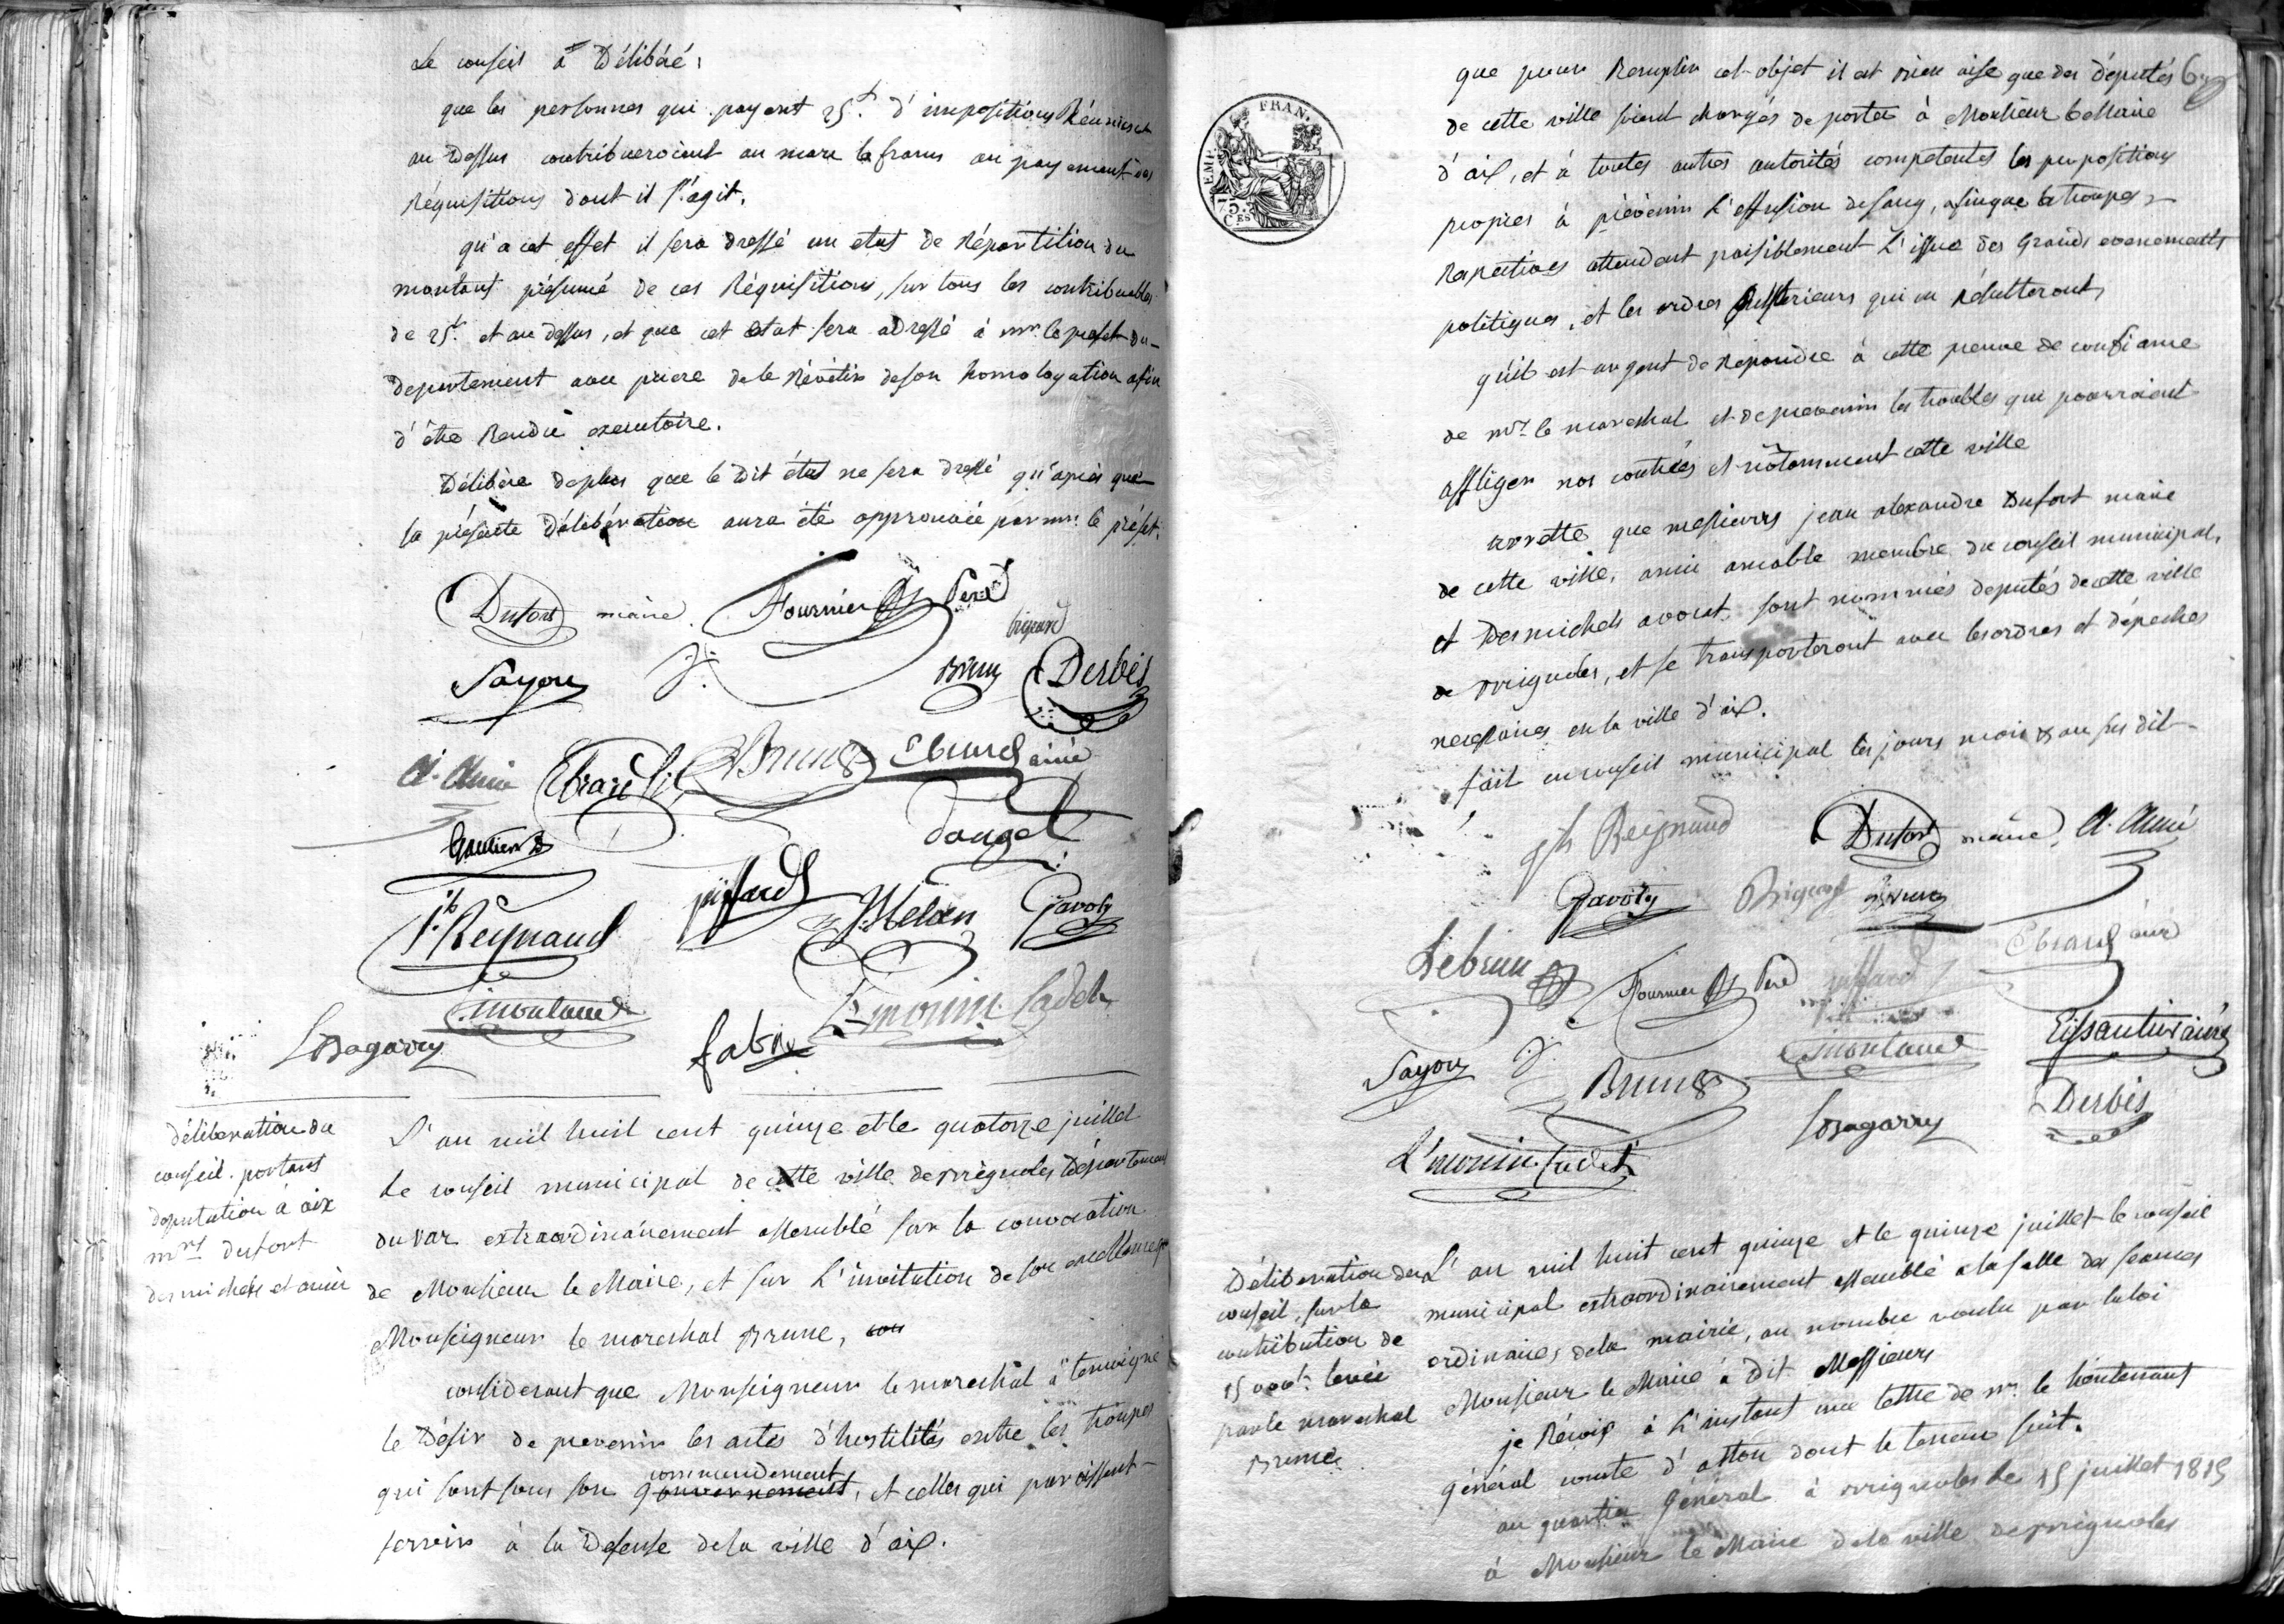 Le conseil a Délibéré,
que les personnes qui payent 25f. d'impositions Réunies et
au Dessus contribueroient au marc le franc au payement des
Réquisitions dont il s'agit.
qu'a cet effet il sera dressé un etat de Répartition du
montant présumé de ces Réquisitions, sur tous les contribuables
de 25f. et au dessus, et que cet état sera adressé à mr. le prefet du
departement avec priere de le Révétir de son homologation afin
d'être Rendu executoire.
Délibère de plus que le Dit état ne sera dressé qu'après que
la présente Délibération aura été approuvée par mr. le préfet.
Dufort maire. Fournier Peré
brigard
Sayou Brun Derbès
A. Amic Ebrard fils Brun Ebrard ainé
Gautier Dauget
J.h Reynaud piffard Mélan Gavoty
Montaud
L'monin Cadet
Lbagarry fabre
Délibération du
conseil portant
deputation à aix
mrs dufort
desmichels et amic
L'an mil huit cent quinze et le quatorze juillet
Le conseil municipal de cette ville de Brignoles Département
du var extraordinairement assemblé sur la convocation
de Monsieur le Maire, et sur L'invitation de son excellence
Monseigneur le marechal Brune,
considerant que Monseigneur le maréchal a temoigné
le Désir de prevenir les actes d'hostilités entre les troupes
commandement
qui sont sous son gouvernement, et celles qui paroissent
servir à la Defense de la ville d'aix.
que pour Remplir cet objet il est bien aise que des députés
de cette ville soient chargés de porter à Monsieur le Maire
d'aix, et à toutes autres autorités competentes les propositions
propres à prévenir L'effusion de sang, afin que les troupes
Respectives attendent paisiblement L'issue des Grands evenements
politiques, et les ordres Ulterieurs qui en Résulteront,
qu'il est urgent de Repondre à cette preuve de confiance
de mr. le marechal et de prevenir les troubles qui pourroient
affliger nos contrées et notamment cette ville
arrette que messieurs jean alexandre Dufort maire
de cette ville, amic amable membre du conseil municipal,
et Desmichels avocat, sont nommés deputés de cette ville
de Brignoles, et se transporteront avec les ordres et dépeches
necessaires en la ville d'aix.
fait en conseil municipal les jours mois & an sus dit
FRAN.
EMP.
75.
C.ES
J.h Reynaud Dufort maire, A. Amic
Gavoty Brigard Brun
Lebrun Fournier Peré piffard Ebrard ainé
Sayou Brun Montaud Eissautier ainé
Lbagarry Derbès
L'monin Cadet
Délibération du
conseil, sur la
contribution de
15000f. levée
par le marechal
Brune
L'an mil huit cent quinze et le quinze juillet le conseil
municipal extraordinairement assemblé a la salle des seances
ordinaires de la mairie, au nombre voulu par la loi
Monsieur le Maire à Dit Messieurs
je Réçois à L'instant une lettre de mr. le lieutenant
Général comte d'atton dont le teneur suit.
au quartier Général à Brignoles le 15 juillet 1815
à Monsieur le Maire de la ville de Brignoles